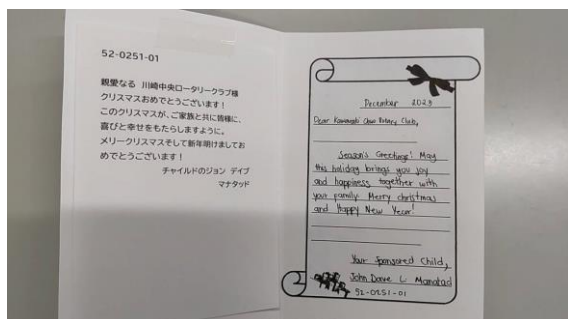 52-0251-01
親愛なる 川崎中央ロータリークラブ様
クリスマスおめでとうございます！
このクリスマスが、ご家族と共に皆様に、
喜びと幸せをもたらしますように。
メリークリスマスそして新年明けましてお
めでとうございます！
チャイルドのジョン デイブ
マナタッド
December 2023
Dear Kawasaki Chuo Rotary Club,
Season's Greetings! May
this holiday brings you joy
and happiness together with
your family. Merry christmas
and Happy New Year!
Your Sponsored Child,
John Dave L Manatad
52-0251-01